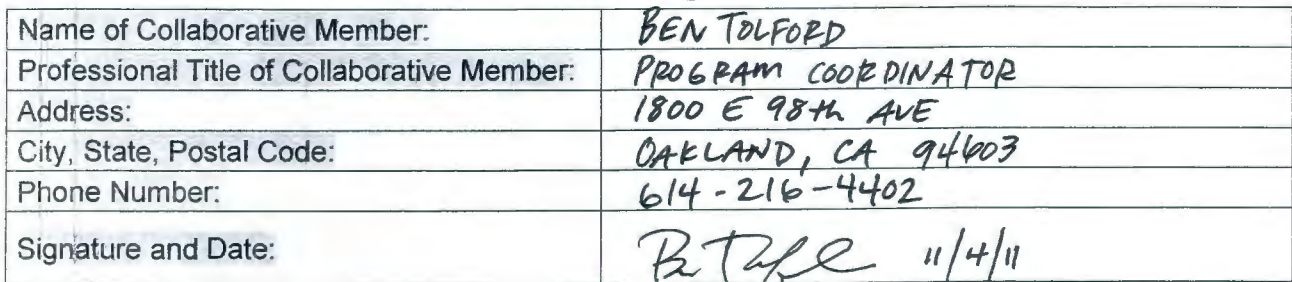 Name of Collaborative Member: BEN TOLFORD
Professional Title of Collaborative Member: PROGRAM COORDINATOR
Address: 1800 E 98th AVE
City, State, Postal Code: OAKLAND, CA 94603
Phone Number: 614-216-4402
Signature and Date: 11/4/11